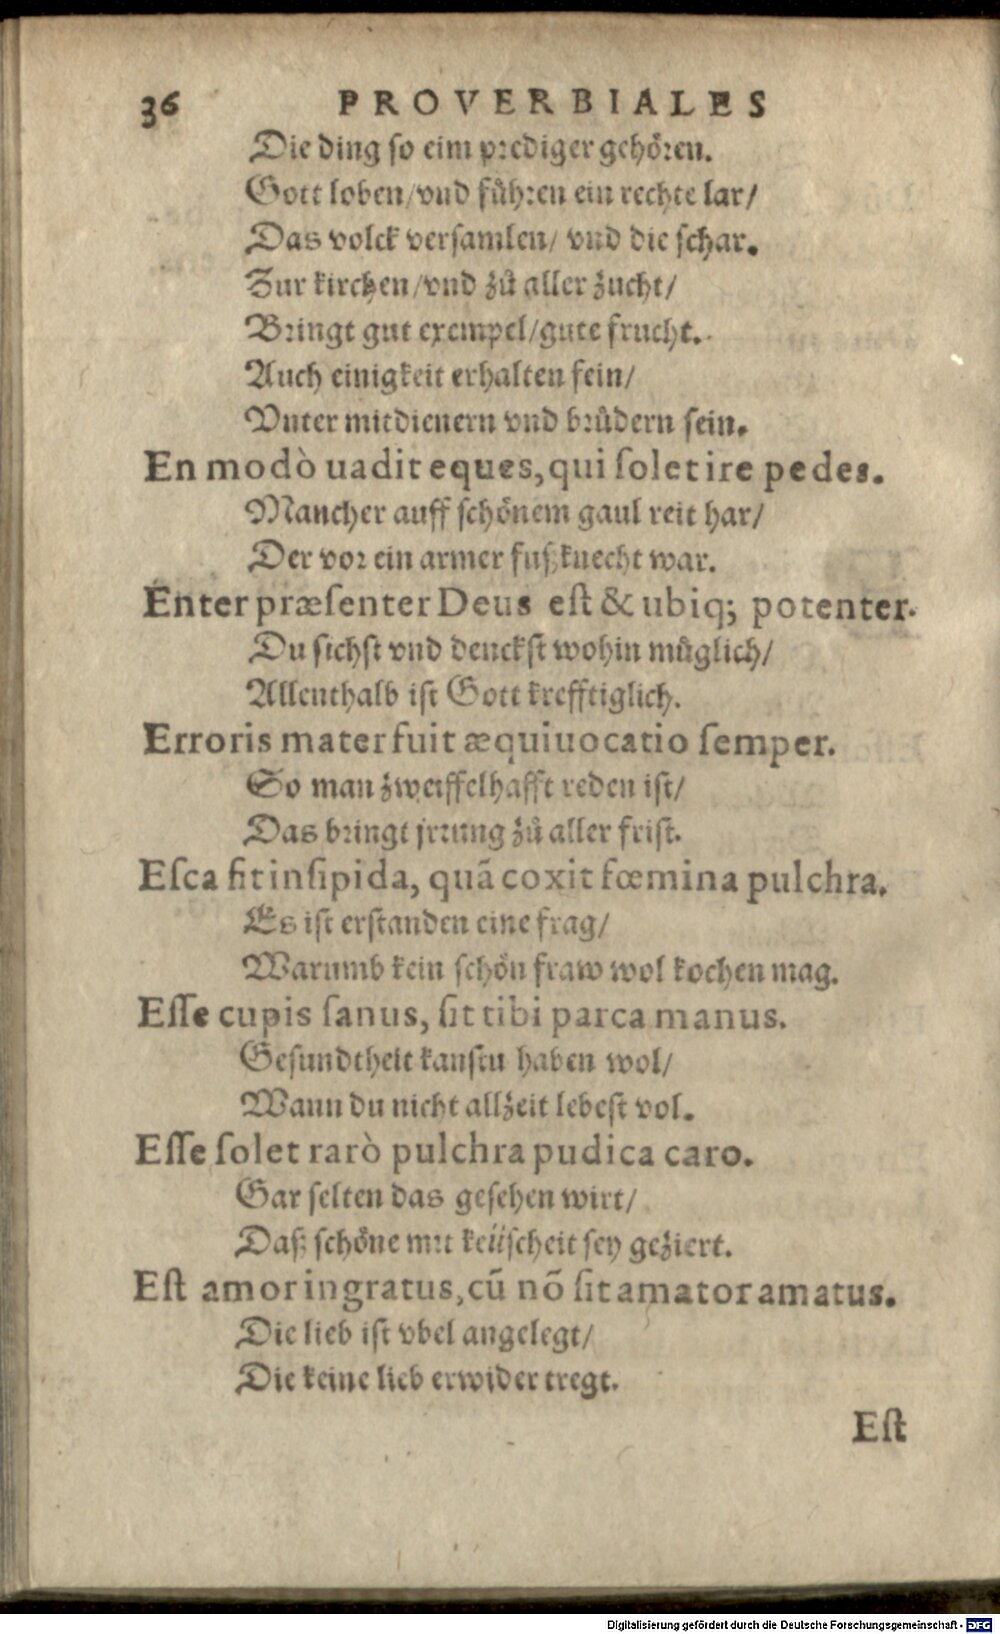 36 PROVERBIALES
Die ding so eim prediger gehoͤren.
Gott loben/vnd fuͤhren ein rechte lar/
Das volck versamlen/ vnd die schar.
Zur kirchen/vnd zů aller zucht/
Bringt gut exempel/gute frucht.
Auch einigkeit erhalten fein/
Vnter mitdienern vnd bruͤdern sein.
En modò uadit eques, qui ſolet ire pedes.
Mancher auff schoͤnem gaul reit har/
Der vor ein armer fußknecht war.
Enter præſenter Deus eſt & ubiq; potenter.
Du sichst vnd denckst wohin muͤglich/
Allenthalb ist Gott krefftiglich.
Erroris mater fuit æquiuocatio ſemper.
So man zweiffelhafft reden ist/
Das bringt jrrung zů aller frist.
Eſca fit inſipida, quã coxit fœmina pulchra.
Es ist erstanden eine frag/
Warumb kein schoͤn fraw wol kochen mag.
Eſſe cupis ſanus, ſit tibi parca manus.
Gesundtheit kanstu haben wol/
Wann du nicht allzeit lebest vol.
Eſſe ſolet rarò pulchra pudica caro.
Gar selten das gesehen wirt/
Daß schoͤne mit keüscheit sey geziert.
Eſt amor ingratus, cũ nõ ſit amator amatus.
Die lieb ist vbel angelegt/
Die keine lieb erwider tregt.
Eſt
Digitalisierung gefördert durch die Deutsche Forschungsgemeinschaft - DFG